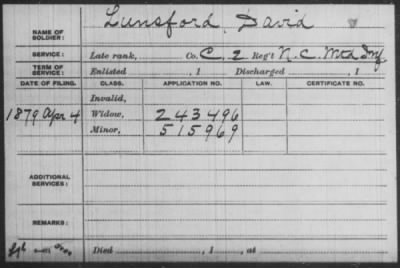 NAME OF SOLDIER: Lunsford, David
SERVICE: Late rank, Co. C, 2 Reg't N.C. Mtd Inf
TERM OF SERVICE: Enlisted , 1 Discharged , 1
DATE OF FILING. CLASS. APPLICATION NO. LAW. CERTIFICATE NO.
Invalid,
1879 Apr 4 Widow, 243496
Minor, 515969
ADDITIONAL SERVICES:
REMARKS:
Died , 1 , at